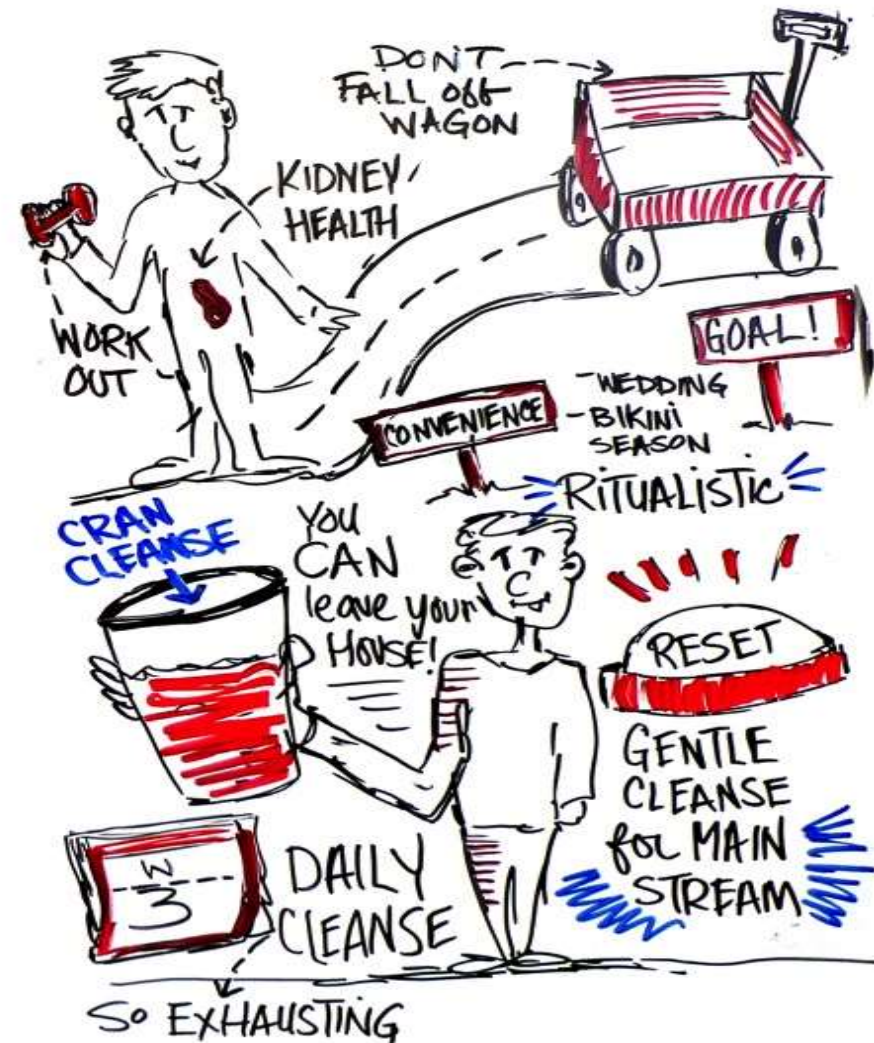 DON'T
FALL Off
WAGON
KIDNEY
HEALTH
WORK
OUT
GOAL!
CONVENIENCE
- WEDDING
- BIKINI
SEASON
RITUALISTIC
CRAN
CLEANSE
YOU
CAN
leave your
HOUSE!
RESET
GENTLE
CLEANSE
for MAIN
STREAM
W
3
DAILY
CLEANSE
SO EXHAUSTING